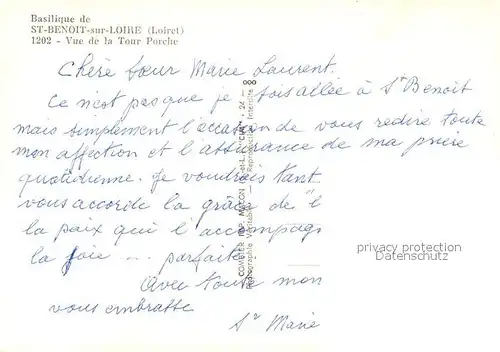 Basilique de
ST-BENOIT-sur-LOIRE (Loiret)
1202 - Vue de la Tour Porche
Chère Sœur Marie Laurent.
Ce n'est pas que je sois allée à St Benoit
mais simplement l'occasion de vous redire toute
mon affection et l'assurance de ma prière
quotidienne. Je voudrais tant
vous accorde la grâce de "l
la paix qui l'accompag
la joie ... parfaite
Avec toute mon
vous embrasse
Sr Marie
COMBIER IMP. MACON
privacy protection
Datenschutz